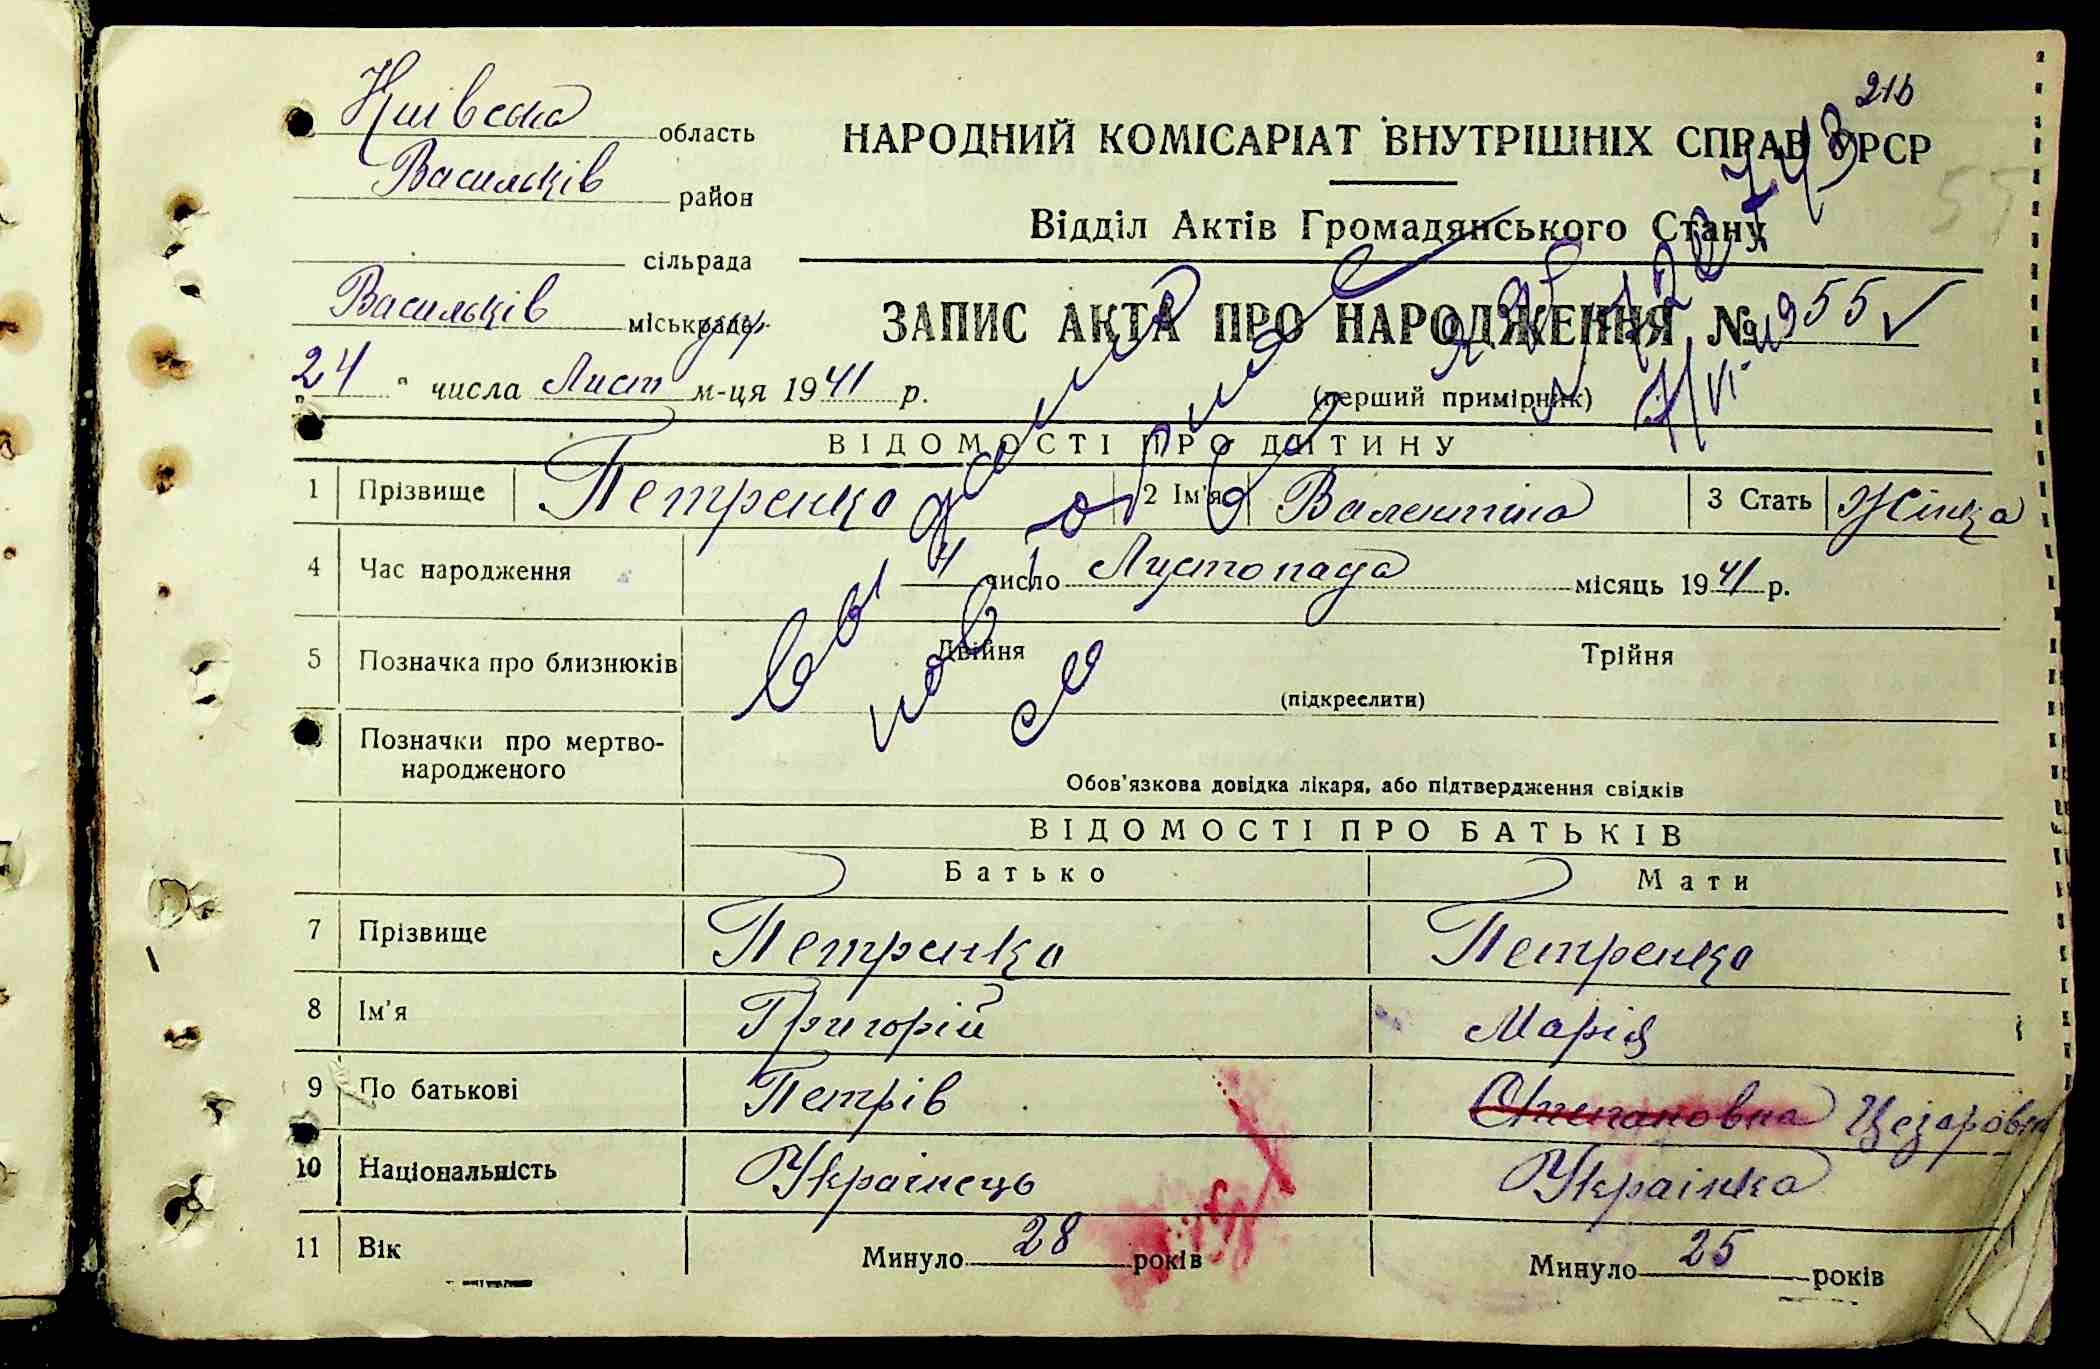 216
Київська область
НАРОДНИЙ КОМІСАРІАТ ВНУТРІШНІХ СПРАВ УРСР
Васильків район
55
Відділ Актів Громадянського Стану
сільрада
Васильків міськрада
ЗАПИС АКТА ПРО НАРОДЖЕННЯ № 955
"24" числа Лист м-ця 1941 р.
(перший примірник)
ВІДОМОСТІ ПРО ДИТИНУ
1 Прізвище Петренко 2 Ім'я Валентина 3 Стать Жінка
4 Час народження 4 число Листопада місяць 1941 р.
5 Позначка про близнюків Двійня Трійня
(підкреслити)
Позначки про мертво-
народженого
Обов'язкова довідка лікаря, або підтвердження свідків
ВІДОМОСТІ ПРО БАТЬКІВ
Батько Мати
7 Прізвище Петренко Петренко
8 Ім'я Григорій Марія
9 По батькові Петрів Степановна Цезаровн
10 Національність Українець Українка
11 Вік Минуло 28 років Минуло 25 років